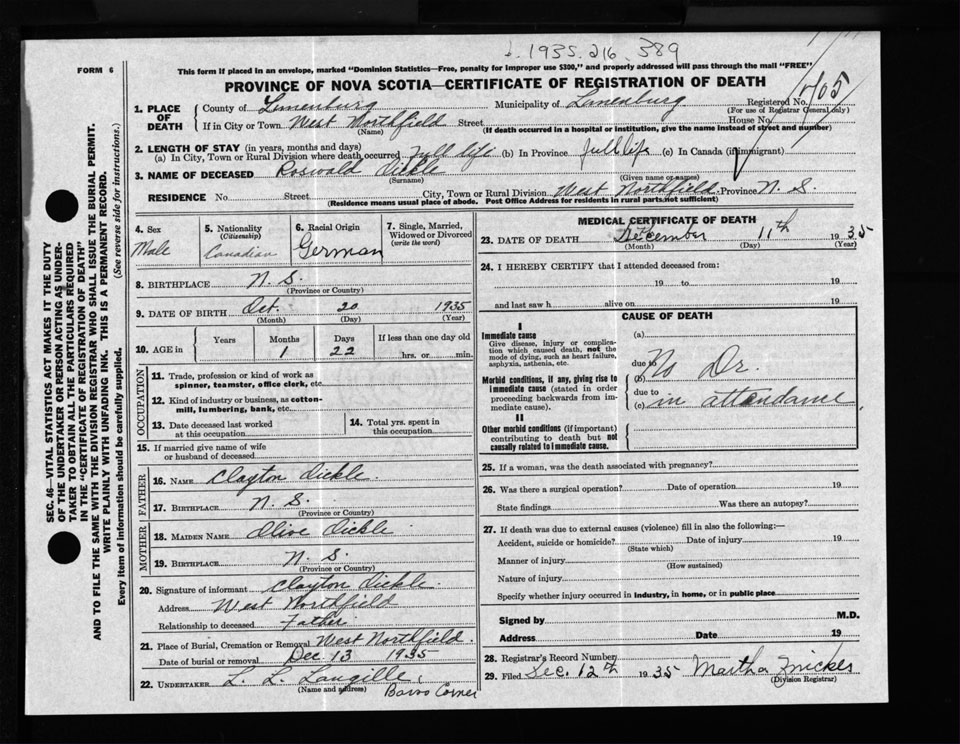 1935.216 389
FORM 6
This form if placed in an envelope, marked "Dominion Statistics—Free, penalty for improper use $300," and properly addressed will pass through the mail "FREE"
PROVINCE OF NOVA SCOTIA—CERTIFICATE OF REGISTRATION OF DEATH
1. PLACE OF DEATH
County of Lunenburg Municipality of Lunenburg Registered No. 705
(For use of Registrar General only)
If in City or Town West Northfield Street House No.
(Name) (If death occurred in a hospital or institution, give the name instead of street and number)
2. LENGTH OF STAY (in years, months and days)
(a) In City, Town or Rural Division where death occurred Full life (b) In Province full life (c) In Canada (if immigrant)
3. NAME OF DECEASED Roswald Dickle
(Surname) (Given name or names)
RESIDENCE No. Street City, Town or Rural Division West Northfield Province N. S.
(Residence means usual place of abode. Post Office Address for residents in rural parts not sufficient)
4. Sex
Male
5. Nationality
(Citizenship)
Canadian
6. Racial Origin
German
7. Single, Married, Widowed or Divorced
(write the word)
8. BIRTHPLACE N. S.
(Province or Country)
9. DATE OF BIRTH Oct. 20 1935
(Month) (Day) (Year)
10. AGE in
Years Months Days If less than one day old
1 22 hrs. or min.
OCCUPATION
11. Trade, profession or kind of work as spinner, teamster, office clerk, etc.
12. Kind of industry or business, as cotton-mill, lumbering, bank, etc.
13. Date deceased last worked at this occupation
14. Total yrs. spent in this occupation
15. If married give name of wife or husband of deceased
FATHER
16. NAME Clayton Dickle
17. BIRTHPLACE N. S.
(Province or Country)
MOTHER
18. MAIDEN NAME Olive Dickle
19. BIRTHPLACE N. S.
(Province or Country)
20. Signature of informant Clayton Dickle
Address West Northfield
Relationship to deceased Father
21. Place of Burial, Cremation or Removal West Northfield
Date of burial or removal Dec 13 1935
22. UNDERTAKER L. L. Langille,
(Name and address) Barss Corner
MEDICAL CERTIFICATE OF DEATH
23. DATE OF DEATH December 11th 1935
(Month) (Day) (Year)
24. I HEREBY CERTIFY that I attended deceased from:
19 to 19
and last saw h alive on 19
CAUSE OF DEATH
I
Immediate cause
Give disease, injury or complication which caused death, not the mode of dying, such as heart failure, asphyxia, asthenia, etc.
Morbid conditions, if any, giving rise to immediate cause (stated in order proceeding backwards from immediate cause).
II
Other morbid conditions (if important) contributing to death but not causally related to immediate cause.
(a)
due to
(b) No Dr.
due to
(c) in attendance.
25. If a woman, was the death associated with pregnancy?
26. Was there a surgical operation? Date of operation 19
State findings Was there an autopsy?
27. If death was due to external causes (violence) fill in also the following:—
Accident, suicide or homicide? Date of injury 19
(State which)
Manner of injury
(How sustained)
Nature of injury
Specify whether injury occurred in industry, in home, or in public place
Signed by M.D.
Address Date 19
28. Registrar's Record Number
29. Filed Dec. 12th 1935 Martha
(Division Registrar)
SEC. 46—VITAL STATISTICS ACT MAKES IT THE DUTY
OF THE UNDERTAKER OR PERSON ACTING AS UNDER-
TAKER TO OBTAIN ALL THE PARTICULARS REQUIRED
IN THE "CERTIFICATE OF REGISTRATION OF DEATH"
AND TO FILE THE SAME WITH THE DIVISION REGISTRAR WHO SHALL ISSUE THE BURIAL PERMIT.
WRITE PLAINLY WITH UNFADING INK. THIS IS A PERMANENT RECORD.
Every item of information should be carefully supplied. (See reverse side for instructions.)